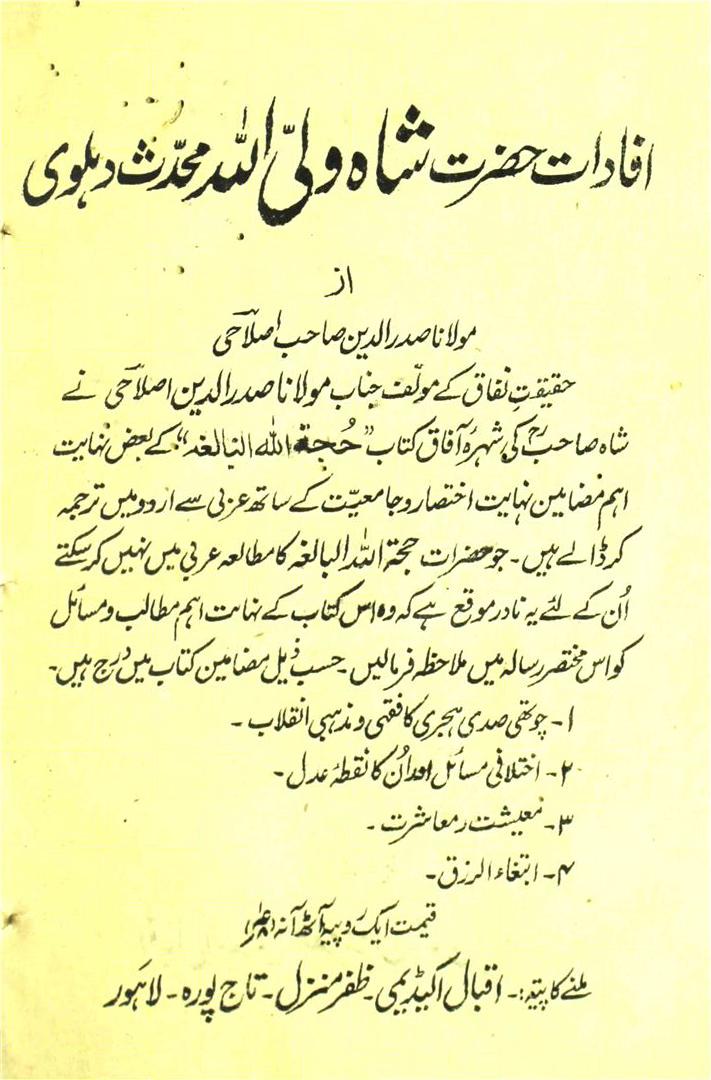 افادات حضرت شاہ ولیّ اللہ محدّث دہلوی
از
مولانا صدر الدین صاحب اصلاحی
حقیقتِ نفاق کے مولّف جناب مولانا صدر الدین اصلاحی نے
شاہ صاحبؒ کی شہرۂ آفاق کتاب "حُجۃ اللہ البالغہ" کے بعض نہایت
اہم مضامین نہایت اختصار و جامعیّت کے ساتھ عربی سے اردو میں ترجمہ
کر ڈالے ہیں۔ جو حضرات حجۃ اللہ البالغہ کا مطالعہ عربی میں نہیں کر سکتے
اُن کے لئے یہ نادر موقع ہے کہ وہ اس کتاب کے نہایت اہم مطالب و مسائل
کو اس مختصر رسالہ میں ملاحظہ فرمالیں۔ حسب ذیل مضامین کتاب میں درج ہیں۔
۱۔ چوتھی صدی ہجری کا فقہی و مذہبی انقلاب۔
۲۔ اختلافی مسائل اور اُن کا نقطۂ عدل۔
۳۔ معیشت و معاشرت۔
۴۔ ابتغاء الرزق۔
قیمت ایک روپیہ آٹھ آنہ
ملنے کا پتہ:۔ اقبال اکیڈیمی۔ ظفر منزل۔ تاج پورہ۔ لاہور